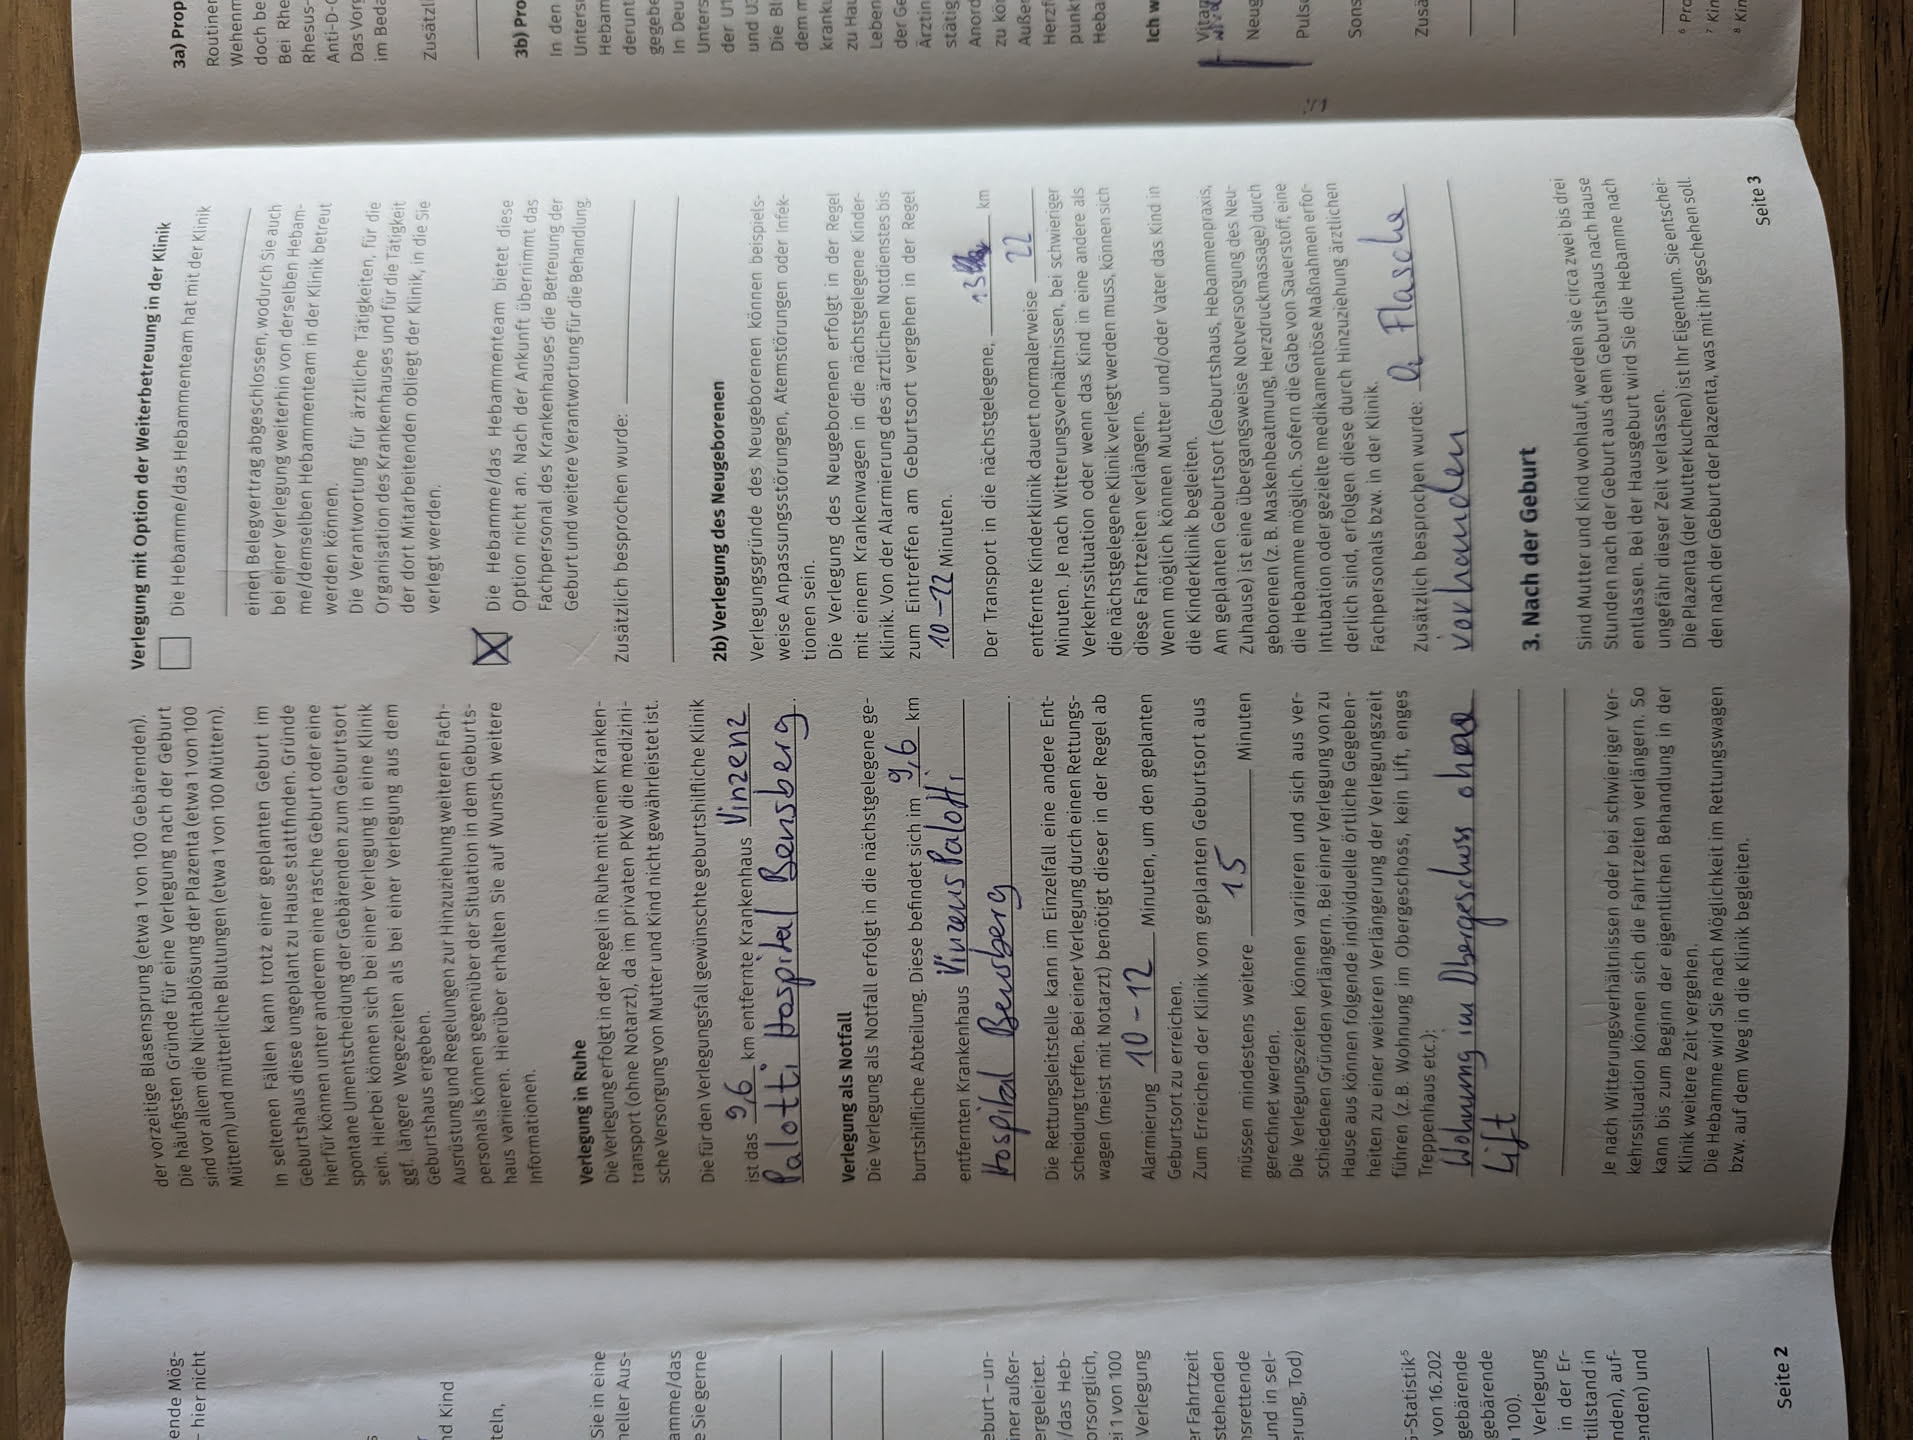 ende Mög-
– hier nicht
nd Kind
teln,
Sie in eine
neller Aus-
amme/das
e Sie gerne
eburt – un-
iner außer-
ergeleitet.
/das Heb-
orsorglich,
ei 1 von 100
Verlegung
er Fahrtzeit
stehenden
nsrettende
und in sel-
erung, Tod)
-Statistik⁵
von 16.202
gebärende
gebärende
100).
Verlegung
in der Er-
tillstand in
nden), auf-
enden) und
Seite 2
der vorzeitige Blasensprung (etwa 1 von 100 Gebärenden).
Die häufigsten Gründe für eine Verlegung nach der Geburt
sind vor allem die Nichtablösung der Plazenta (etwa 1 von 100
Müttern) und mütterliche Blutungen (etwa 1 von 100 Müttern).
In seltenen Fällen kann trotz einer geplanten Geburt im
Geburtshaus diese ungeplant zu Hause stattfinden. Gründe
hierfür können unter anderem eine rasche Geburt oder eine
spontane Umentscheidung der Gebärenden zum Geburtsort
sein. Hierbei können sich bei einer Verlegung in eine Klinik
ggf. längere Wegezeiten als bei einer Verlegung aus dem
Geburtshaus ergeben.
Ausrüstung und Regelungen zur Hinzuziehung weiteren Fach-
personals können gegenüber der Situation in dem Geburts-
haus variieren. Hierüber erhalten Sie auf Wunsch weitere
Informationen.
Verlegung in Ruhe
Die Verlegung erfolgt in der Regel in Ruhe mit einem Kranken-
transport (ohne Notarzt), da im privaten PKW die medizini-
sche Versorgung von Mutter und Kind nicht gewährleistet ist.
Die für den Verlegungsfall gewünschte geburtshilfliche Klinik
ist das 9,6 km entfernte Krankenhaus Vinzenz
Palotti Hospital Bensberg.
Verlegung als Notfall
Die Verlegung als Notfall erfolgt in die nächstgelegene ge-
burtshilfliche Abteilung. Diese befindet sich im 9,6 km
entfernten Krankenhaus Vinzenz Palotti
Hospital Bensberg.
Die Rettungsleitstelle kann im Einzelfall eine andere Ent-
scheidung treffen. Bei einer Verlegung durch einen Rettungs-
wagen (meist mit Notarzt) benötigt dieser in der Regel ab
Alarmierung 10-12 Minuten, um den geplanten
Geburtsort zu erreichen.
Zum Erreichen der Klinik vom geplanten Geburtsort aus
müssen mindestens weitere 15 Minuten
gerechnet werden.
Die Verlegungszeiten können variieren und sich aus ver-
schiedenen Gründen verlängern. Bei einer Verlegung von zu
Hause aus können folgende individuelle örtliche Gegeben-
heiten zu einer weiteren Verlängerung der Verlegungszeit
führen (z.B. Wohnung im Obergeschoss, kein Lift, enges
Treppenhaus etc.):
Wohnung im Obergeschoss ohne
Lift
Je nach Witterungsverhältnissen oder bei schwieriger Ver-
kehrssituation können sich die Fahrtzeiten verlängern. So
kann bis zum Beginn der eigentlichen Behandlung in der
Klinik weitere Zeit vergehen.
Die Hebamme wird Sie nach Möglichkeit im Rettungswagen
bzw. auf dem Weg in die Klinik begleiten.
Verlegung mit Option der Weiterbetreuung in der Klinik
Die Hebamme/das Hebammenteam hat mit der Klinik
einen Belegvertrag abgeschlossen, wodurch Sie auch
bei einer Verlegung weiterhin von derselben Hebam-
me/demselben Hebammenteam in der Klinik betreut
werden können.
Die Verantwortung für ärztliche Tätigkeiten, für die
Organisation des Krankenhauses und für die Tätigkeit
der dort Mitarbeitenden obliegt der Klinik, in die Sie
verlegt werden.
X Die Hebamme/das Hebammenteam bietet diese
Option nicht an. Nach der Ankunft übernimmt das
Fachpersonal des Krankenhauses die Betreuung der
Geburt und weitere Verantwortung für die Behandlung.
Zusätzlich besprochen wurde:
2b) Verlegung des Neugeborenen
Verlegungsgründe des Neugeborenen können beispiels-
weise Anpassungsstörungen, Atemstörungen oder Infek-
tionen sein.
Die Verlegung des Neugeborenen erfolgt in der Regel
mit einem Krankenwagen in die nächstgelegene Kinder-
klinik. Von der Alarmierung des ärztlichen Notdienstes bis
zum Eintreffen am Geburtsort vergehen in der Regel
10-12 Minuten.
Der Transport in die nächstgelegene, 13 km
entfernte Kinderklinik dauert normalerweise 22
Minuten. Je nach Witterungsverhältnissen, bei schwieriger
Verkehrssituation oder wenn das Kind in eine andere als
die nächstgelegene Klinik verlegt werden muss, können sich
diese Fahrtzeiten verlängern.
Wenn möglich können Mutter und/oder Vater das Kind in
die Kinderklinik begleiten.
Am geplanten Geburtsort (Geburtshaus, Hebammenpraxis,
Zuhause) ist eine übergangsweise Notversorgung des Neu-
geborenen (z. B. Maskenbeatmung, Herzdruckmassage) durch
die Hebamme möglich. Sofern die Gabe von Sauerstoff, eine
Intubation oder gezielte medikamentöse Maßnahmen erfor-
derlich sind, erfolgen diese durch Hinzuziehung ärztlichen
Fachpersonals bzw. in der Klinik.
Zusätzlich besprochen wurde: O₂ Flasche
vorhanden
3. Nach der Geburt
Sind Mutter und Kind wohlauf, werden sie circa zwei bis drei
Stunden nach der Geburt aus dem Geburtshaus nach Hause
entlassen. Bei der Hausgeburt wird Sie die Hebamme nach
ungefähr dieser Zeit verlassen.
Die Plazenta (der Mutterkuchen) ist Ihr Eigentum. Sie entschei-
den nach der Geburt der Plazenta, was mit ihr geschehen soll.
Seite 3
3a) Prop
Routiner
Wehenm
doch be
Bei Rhe
Rhesus-
Anti-D-
Das Vorg
im Beda
Zusätzl
3b) Pro
In den
Untersu
Hebam
derunt
gegebe
In Deu
Unters
der U1
und U
Die Bl
dem m
kranku
zu Hau
Leben
der Ge
Ärztin
stätig
Anord
zu kö
Außer
Herzf
punkt
Heba
Ich w
Vitam
Neug
Pulso
Sons
Zusä
⁶ Pro
⁷ Kin
⁸ Kin